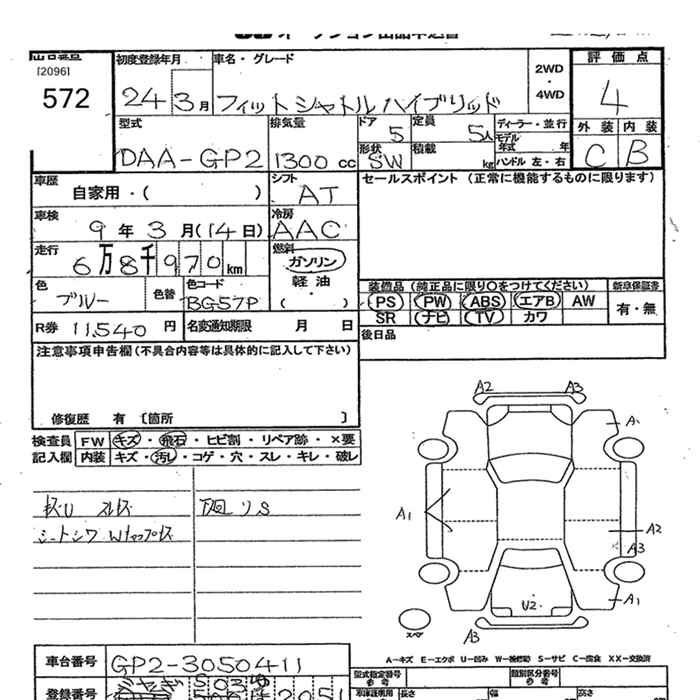 オークション出品申込書
[2096]
572
初度登録年月
24年 3月
車名・グレード
フィットシャトルハイブリッド
2WD
・
4WD
評価点
4
外装 内装
C B
型式
DAA-GP2
排気量
1300 cc
ドア
5
定員
5人
形状
SW
積載
kg
ディーラー・並行
モデル
年式 年
ハンドル 左・右
車歴
自家用・( )
シフト
AT
セールスポイント (正常に機能するものに限ります)
車検
9年 3月(14日)
冷房
AAC
走行
6万8千970km
燃料
ガソリン
軽油
・
( )
色
ブルー
色替
色コード
BG57P
装備品 (純正品に限り○をつけてください)
PS PW ABS エアB AW
SR ナビ TV カワ
新車保証書
有・無
R券 11,540 円
名変通知期限 月 日
後日品
注意事項申告欄(不具合内容等は具体的に記入して下さい)
修復歴 有 〔箇所 〕
検査員
記入欄
FW キズ・飛石・ヒビ割・リペア跡・×要
内装 キズ・汚レ・コゲ・穴・スレ・キレ・破レ
下廻リS
シートシワ
A2 A3
A1
A2
A3
A1
U2
A3
スペア
A-キズ E-エクボ U-凹み W-補修跡 S-サビ C-腐食 XX-交換済
車台番号
GP2-3050411
登録番号
型式指定番号
参考
類別区分番号
参考
長さ
幅
高さ